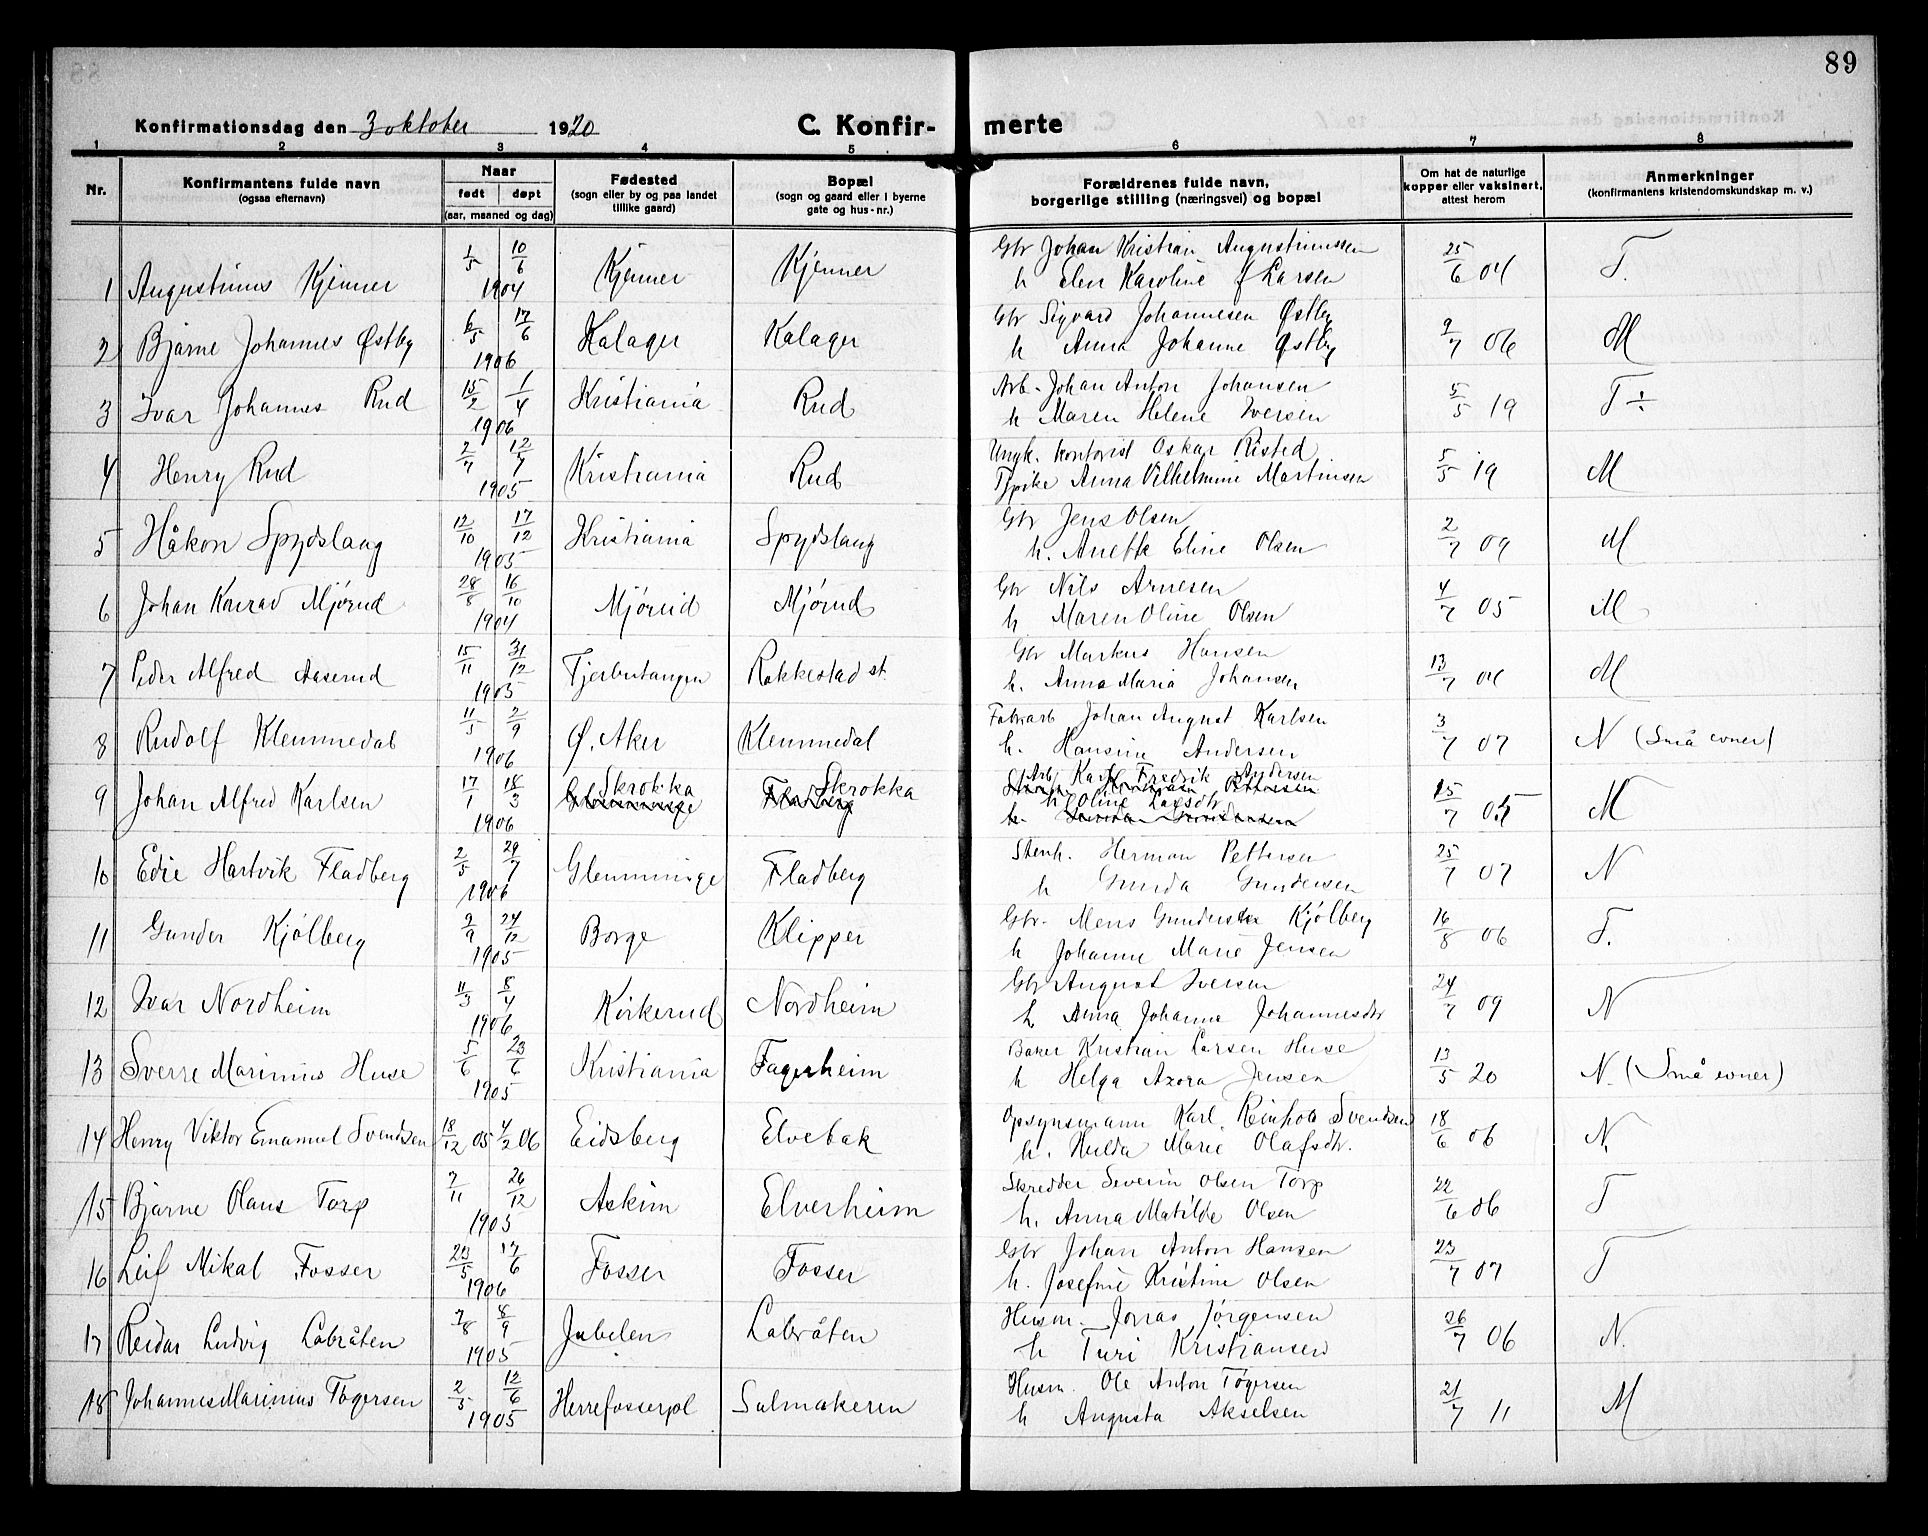 89
Konfirmationsdag den 3 oktober 1920 C. Konfir- merte
1 2 3 4 5 6 7 8
Nr. Konfirmantens fulde navn (ogsaa efternavn) Naar født døpt (aar, maaned og dag) Fødested (sogn eller by og paa landet tillike gaard) Bopæl (sogn og gaard eller i byerne gate og hus-nr.) Forældrenes fulde navn, borgerlige stilling (næringsvei) og bopæl Om hat de naturlige kopper eller vaksinert, attest herom Anmerkninger (konfirmantens kristendomskundskap m. v.)
1 Augustinus Kjenner 1/5 10/6 1904 Kjenner Kjenner Gbr Johan Kristian Augustinussen
h Elen Karoline f Larsen 25/6 04 T.
2 Bjarne Johannes Østby 6/5 17/6 1906 Kalager Kalager Gbr Sigvard Johannesen Østby
h Anna Johanne Østby 9/7 06 M
3 Ivar Johannes Rud 15/2 1/4 1906 Kristiania Rud Arb. Johan Anton Johansen
h Maren Helene Iversen 5/5 19 T÷
4 Henry Rud 2/7 12/7 1905 Kristiania Rud Ungk. kontorist Oskar Risted
Tj.pike Anna Vilhelmine Martinsen 5/5 19 M
5 Håkon Spydslaug 12/10 17/12 1905 Kristiania Spydslaug Gbr Jens Olsen
h. Anette Eline Olsen 2/7 09 M
6 Johan Konrad Mjørud 28/8 16/10 1904 Mjørud Mjørud Gbr Nils Arnesen
h Maren Oline Olsen 4/7 05 M
7 Peder Alfred Aaserud 15/11 31/12 1905 Tjerbutangen Rakkestad st. Gbr Markus Hansen
h. Anna Maria Johansen 13/7 06 M
8 Rudolf Klemmedal 11/5 2/9 1906 Ø. Aker Klemmedal Fabrarb Johan August Karlsen
h. Hansine Andersen 3/7 07 N (små evner)
9 Johan Alfred Karlsen 17/1 18/3 1906 Skrokka Glemminge Skrokka Fladberg Arb. Karl Fredrik Andersen
Stenh. Herman Pettersen
h Oline Larsdtr
h. Gunda Gundersen 15/7 05 M
10 Edie Hartvik Fladberg 2/5 29/7 1906 Glemminge Fladberg Stenh. Herman Pettersen
h Gunda Gundersen 25/7 07 N
11 Gunder Kjølberg 2/9 24/12 1905 Borge Klipper Gbr. Mens Gundersen Kjølberg
h Johanne Marie Jensen 16/8 06 T.
12 Ivar Nordheim 11/3 8/4 1906 Kirkerud Nordheim Gbr August Iversen
h. Anna Johanna Johannesdtr 24/7 09 N
13 Sverre Marinius Huse 5/6 23/6 1905 Kristiania Fagerheim Baker Kristian Larsen Huse
h Helga Azora Jensen 13/5 20 N. (små evner)
14 Henry Viktor Emanuel Svendsen 18/12 05 4/2 06 Eidsberg Elvebak Opsynsmann Karl Reinhold Svendsen
h. Hulda Marie Olafsdtr. 18/6 06 N.
15 Bjarne Olaus Torp 7/11 26/12 1905 Askim Elverheim Skredder Severin Olsen Torp
h. Anna Matilde Olsen 22/6 06 T
16 Leif Mikal Fosser 23/5 17/6 1906 Fosser Fosser Gbr Johan Anton Hansen
h. Josefine Kristine Olsen 23/7 07 T
17 Reidar Ludvig Labråten 7/8 8/9 1905 Jubelen Labråten Husm. Jonas Jørgensen
h Turi Kristiansen 26/7 06 N.
18 Johannes Marinius Tøgersen 2/5 12/6 1905 Herrefosserpl Salmakeren Husm. Ole Anton Tøgersen
h Augusta Akselsen 21/7 11 M